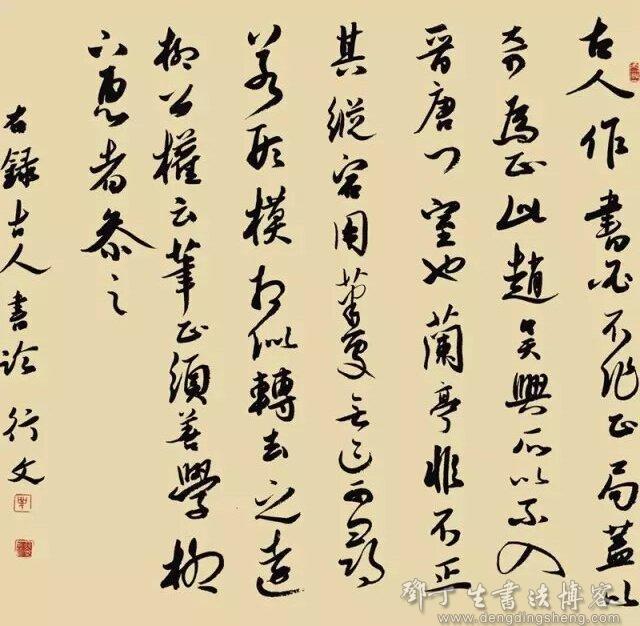 古人作書必不作正局蓋以
奇為正此趙吳興所以不入
晉唐門室也蘭亭非不正
其縱宕用筆處無跡可尋
若形模相似轉去之遠
柳公權云筆正須善學柳
下惠者參之
右錄古人書論 行文
鄧丁生書法博客
www.dengdingsheng.com